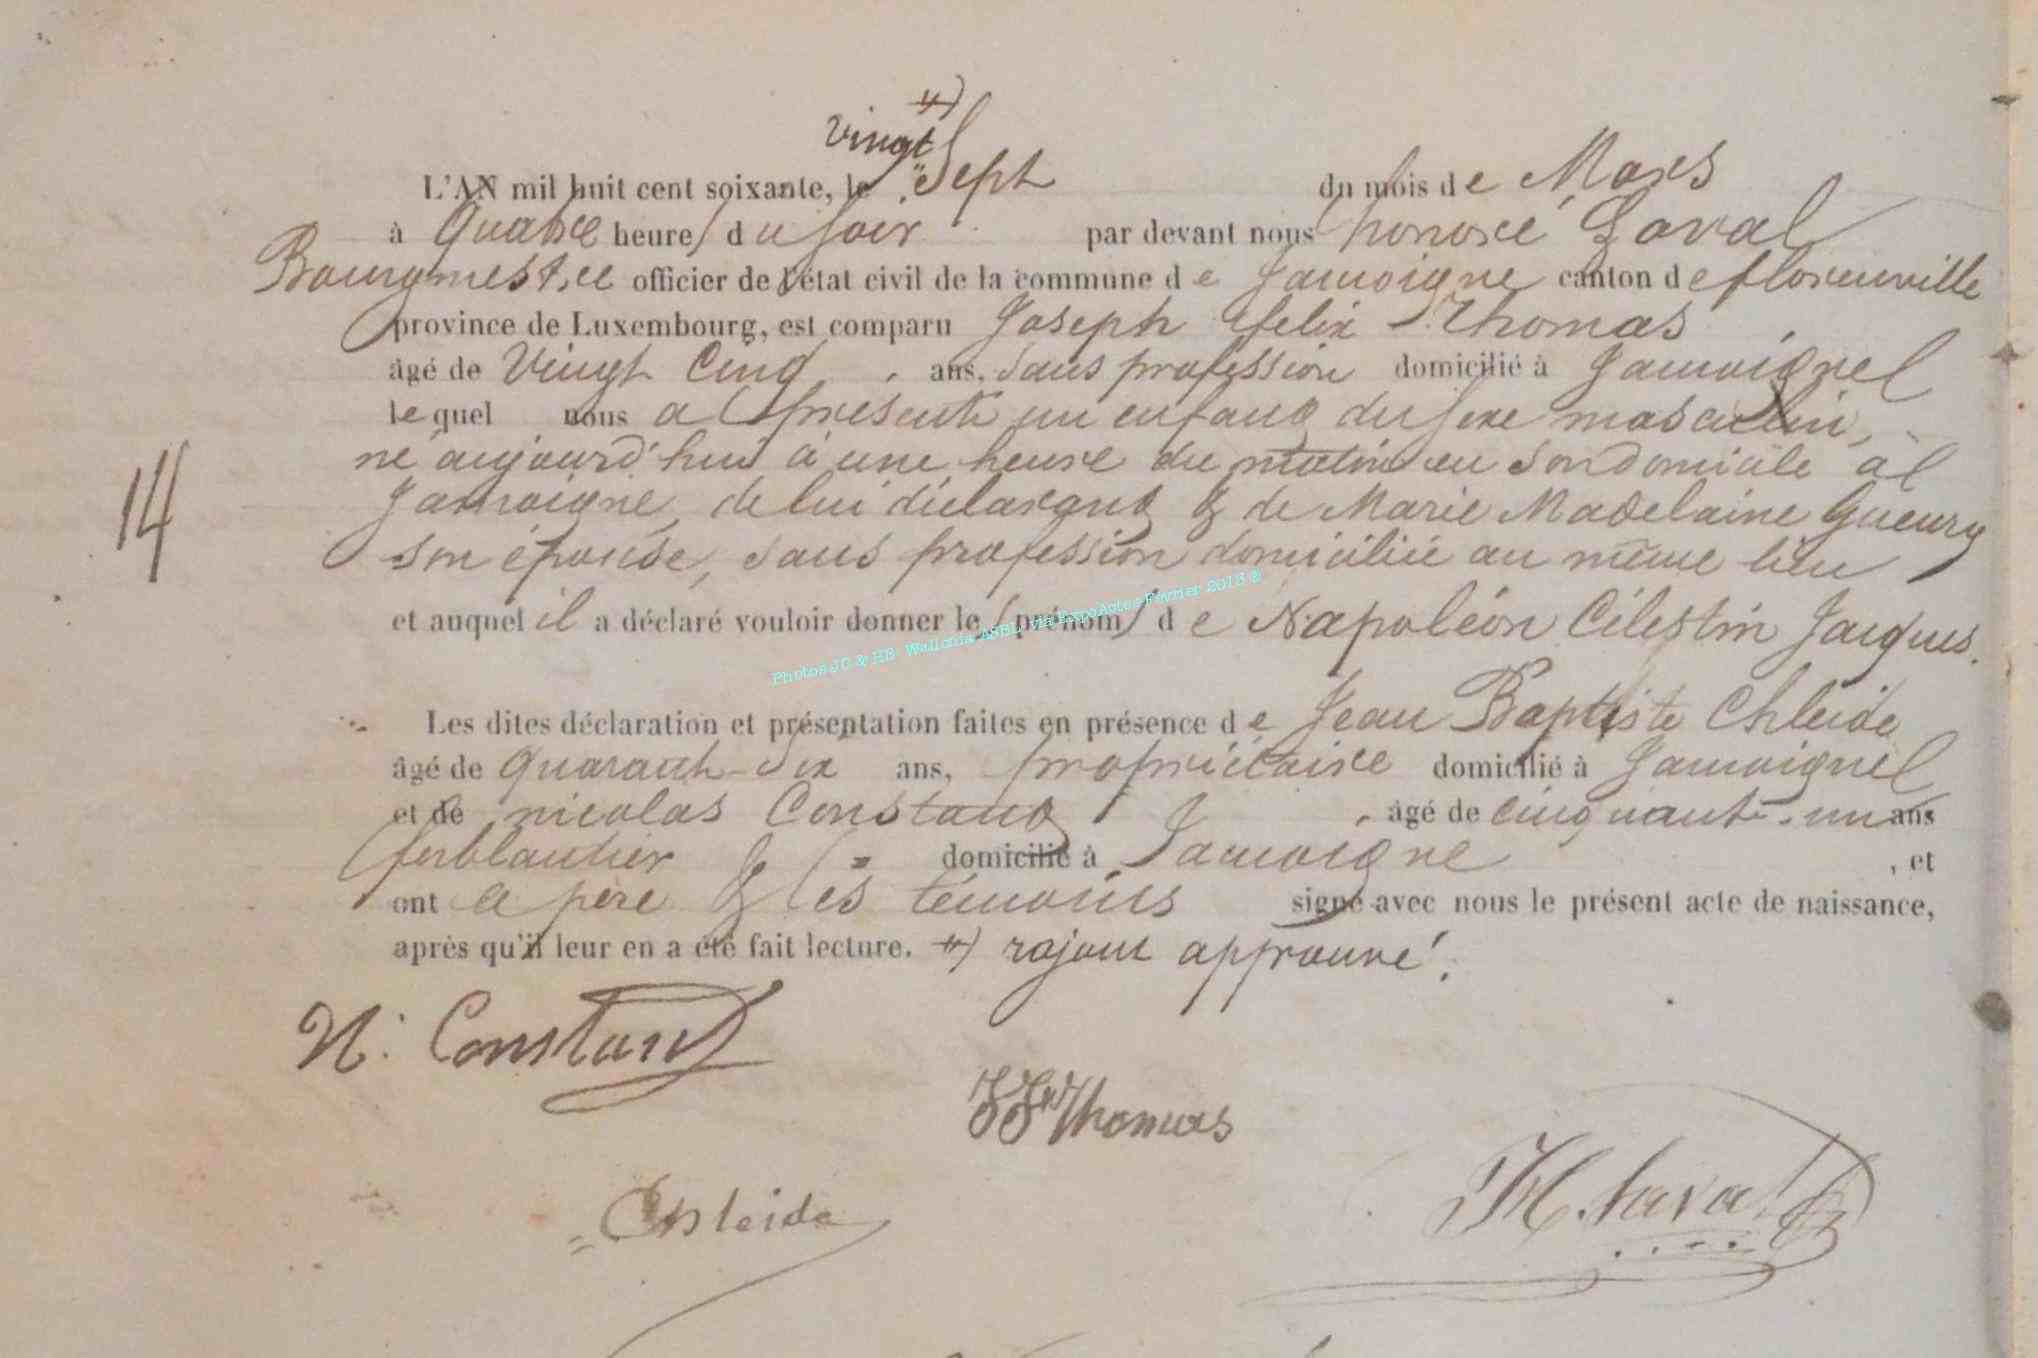 *)
vingt
L'AN mil huit cent soixante, le " Sept du mois de Mars
à quatre heures du soir par devant nous honoré Laval
Bourgmestre officier de l'état civil de la commune de Jamoigne canton de florenville
province de Luxembourg, est comparu Joseph felix Thomas
âgé de Vingt Cinq ans, sans profession domicilié à Jamoigne
lequel nous a présenté un enfant du sexe masculin,
né aujourd'hui à une heure du matin en son domicile à
Jamoigne, de lui déclarant & de Marie Madelaine Gueury
son épouse, sans profession domiciliée au même lieu
14
et auquel il a déclaré vouloir donner les prénoms de Napoléon Célestin Jacques.
Photos JC & HB Wallonia ASBL via ExpoActes Février 2013 ®
Les dites déclaration et présentation faites en présence de Jean Baptiste Chleide
âgé de quarante-six ans, propriétaire domicilié à Jamoigne
et de nicolas Constant, âgé de cinquante-un ans
ferblantier domicilié à Jamoigne, et
ont le père & les témoins signé avec nous le présent acte de naissance,
après qu'il leur en a été fait lecture. *) rajout approuvé.
N. Constant
JF Thomas
Chleide
H. Laval